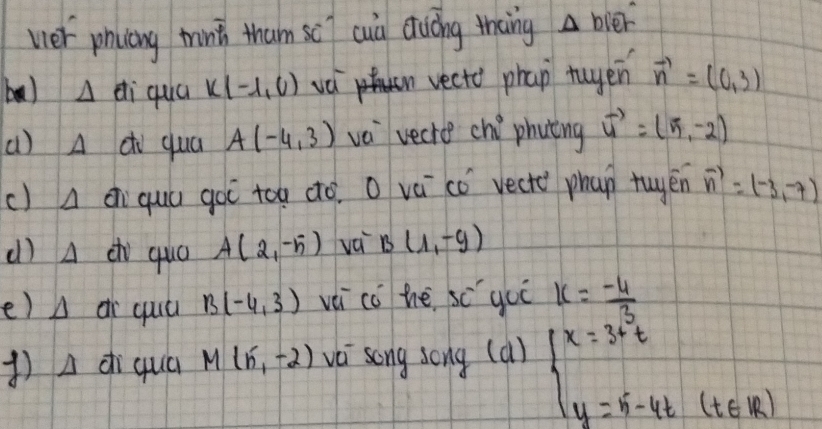 Viết phương trình tham số của đường thẳng Δ biết
b) Δ đi qua K(-1,0) và vectơ pháp tuyến n⃗ = (0,3)
a) Δ đi qua A(-4,3) và vectơ chỉ phương u⃗ = (5,-2)
c) Δ đi qua gốc toạ độ O và có vectơ pháp tuyến n⃗ = (-3,-7)
d) Δ đi qua A(2,-5) và B(1,-9)
e) Δ đi qua B(-4,3) và có hệ số góc k = -4/3
f) Δ đi qua M(5,-2) và song song (d) { x = 3+t
y = 5-4t (t ∈ ℝ)